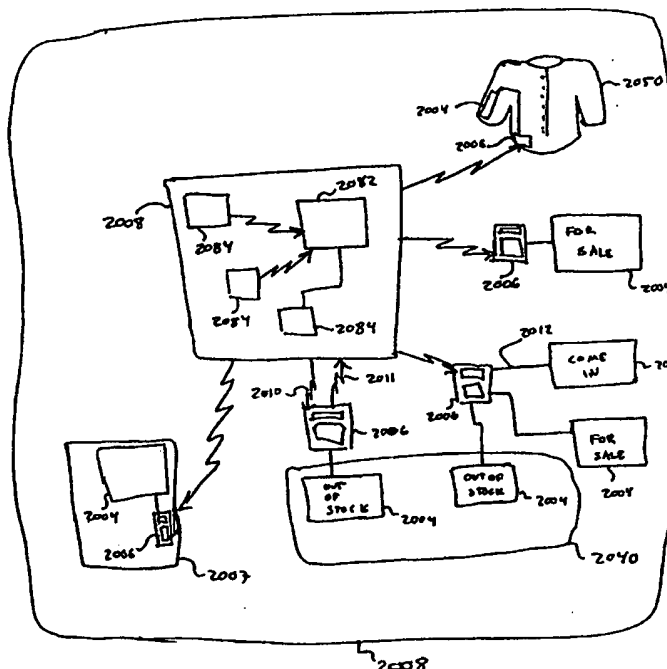 2050
2004
2006
2082
2008
2084
FOR
SALE
2006
2084
2084
2012
COME
IN
2010
2011
2006
2006
FOR
SALE
2004
OUT
OF
STOCK
2004
OUT OF
STOCK
2004
2004
2006
2007
2040
2008